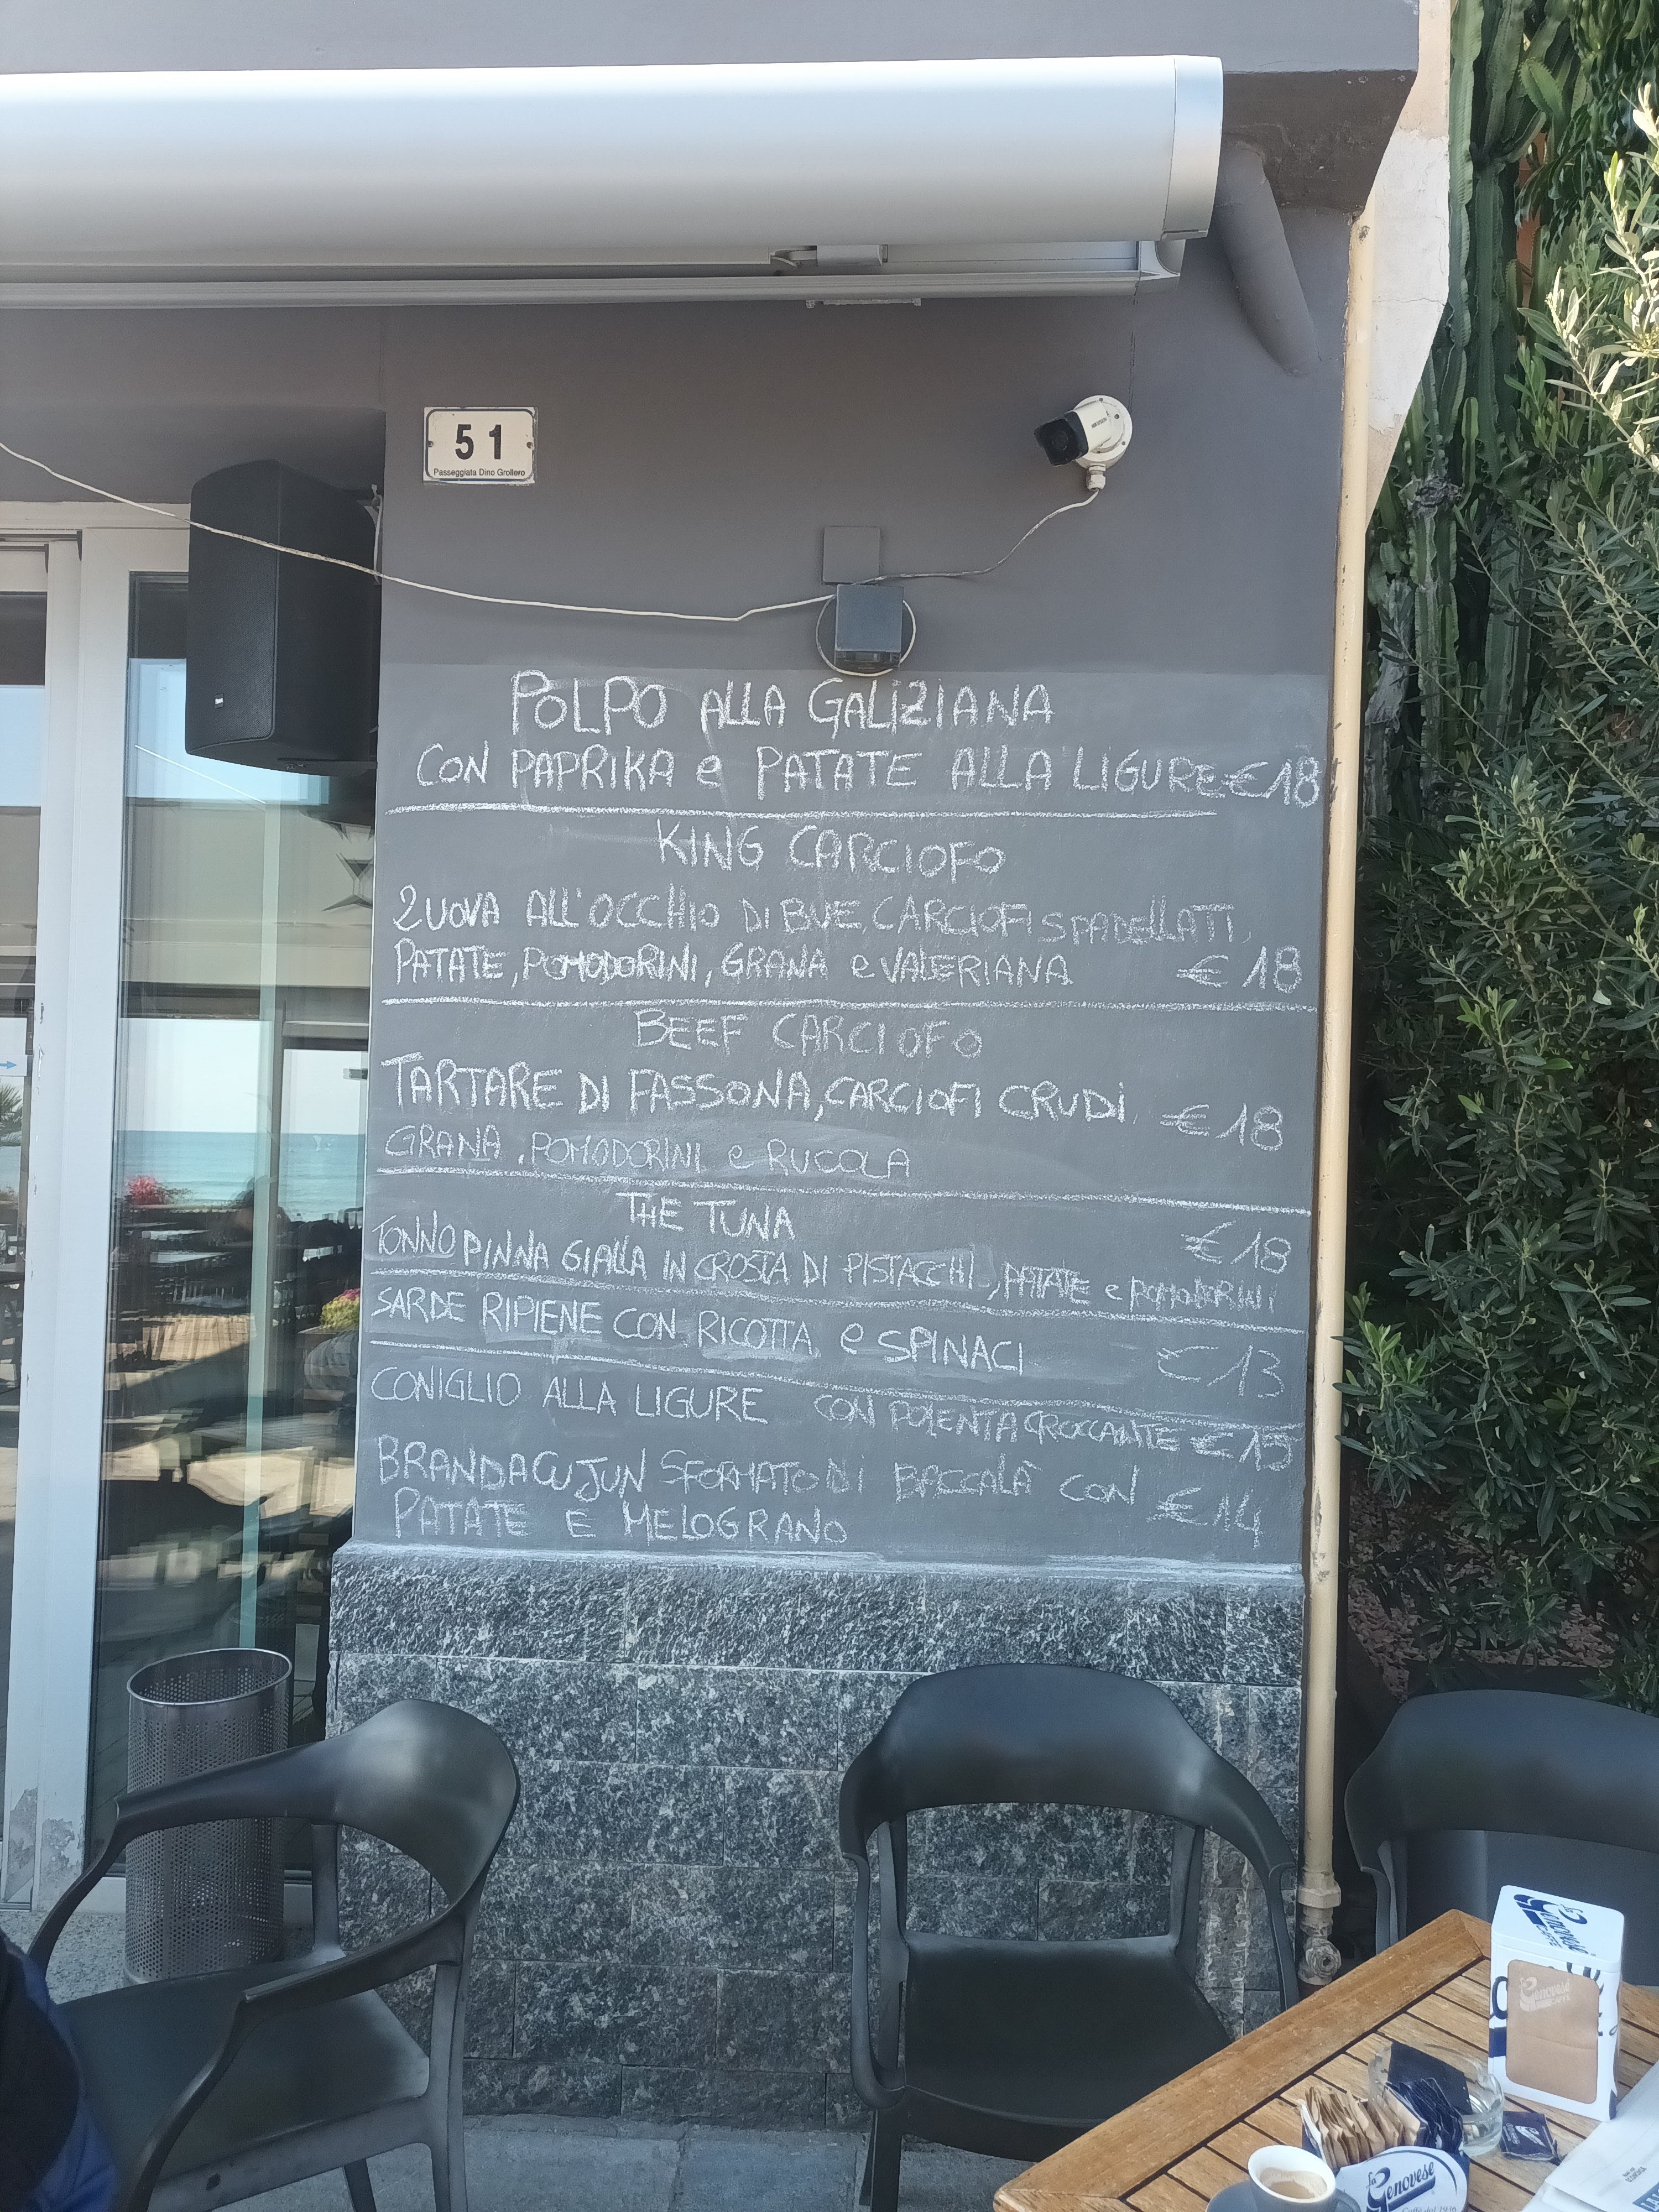 51
Passeggiata Dino Grollero
HIKVISION
POLPO ALLA GALIZIANA
CON PAPRIKA e PATATE ALLA LIGURE €18
KING CARCIOFO
2 UOVA ALL'OCCHIO DI BUE, CARCIOFI SPADELLATI,
PATATE, POMODORINI, GRANA e VALERIANA €18
BEEF CARCIOFO
TARTARE DI FASSONA, CARCIOFI CRUDI, €18
GRANA, POMODORINI e RUCOLA
THE TUNA €18
TONNO PINNA GIALLA IN CROSTA DI PISTACCHI, PATATE e POMODORINI
SARDE RIPIENE CON RICOTTA e SPINACI €13
CONIGLIO ALLA LIGURE CON POLENTA CROCCANTE €15
BRANDACUJUN SFORMATO DI BACCALÀ CON €14
PATATE E MELOGRANO
la Genovese
CAFFÈ
Genovese
la Genovese
Caffè dal 1936